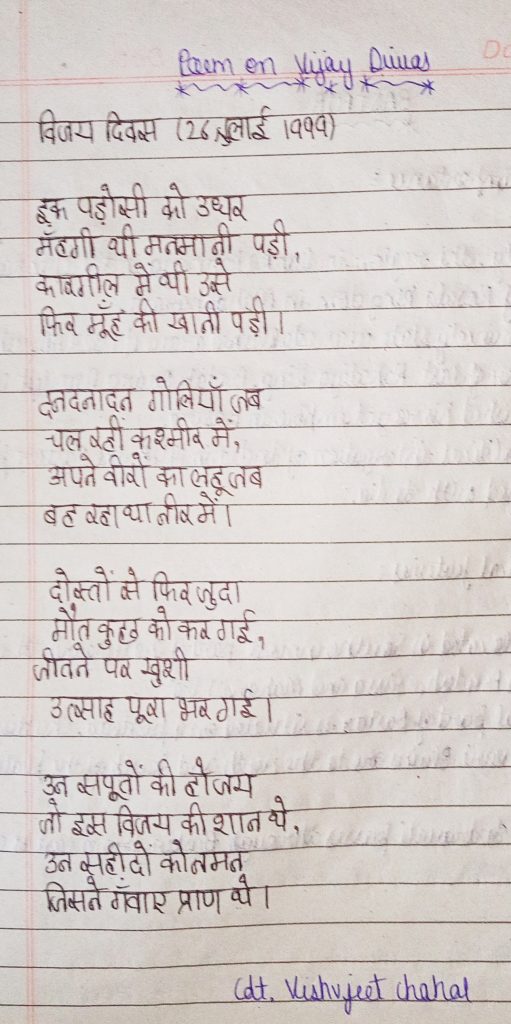 Poem on Vijay Diwas
विजय दिवस (26 जुलाई 1999)
इक पड़ोसी को उधर
मँहगी थी मनमानी पड़ी,
कारगील में थी उसे
फिर मूँह की खानी पड़ी।
दनदनादन गोलियाँ जब
चल रहीं कश्मीर में,
अपने वीरों का लहू जब
बह रहा था नीर में।
दोस्तों से फिर जुदा
मौत कुछ को कर गई,
जीतने पर खुशी
उत्साह पूरा भर गई।
उन सपूतों की हो जय
जो इस विजय की शान थे,
उन सहीदों को नमन
जिसने गँवाए प्राण थे।
Cdt. Vishvjeet Chahal